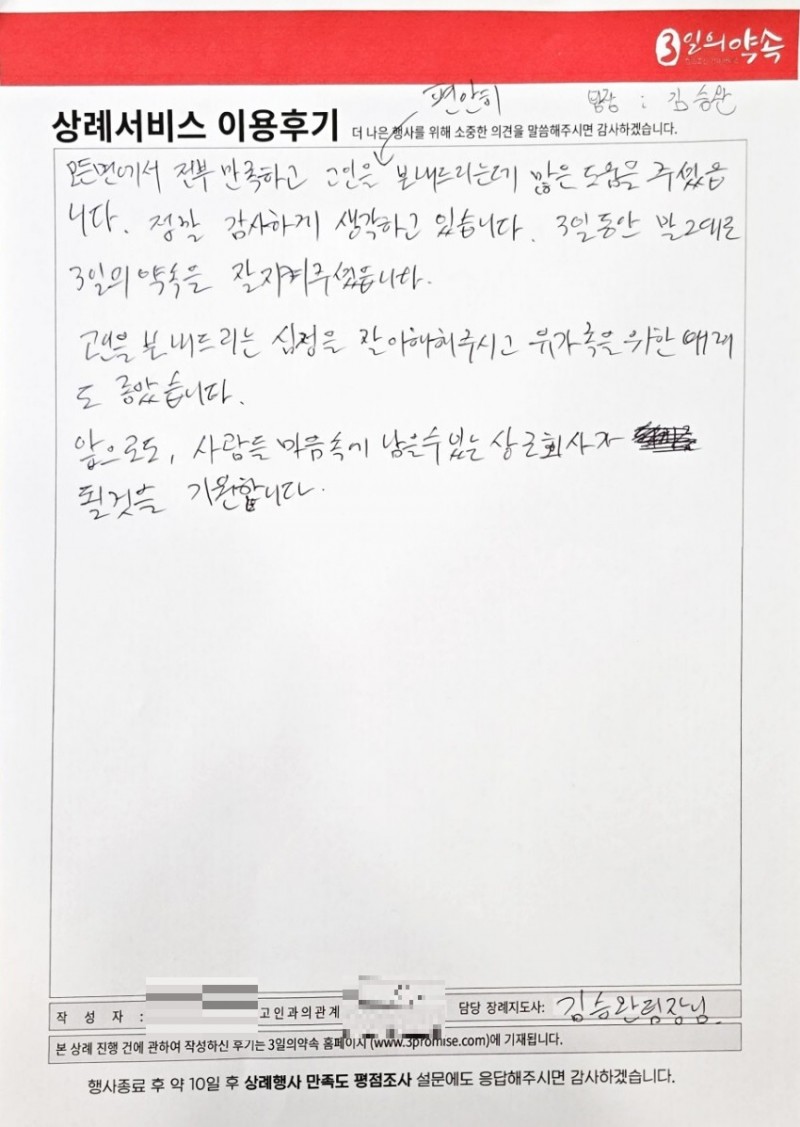 3일의약속
편안히
팀장 : 김승완
상례서비스 이용후기 더 나은 행사를 위해 소중한 의견을 말씀해주시면 감사하겠습니다.
모든면에서 전부 만족하고 고인을 보내드리는데 많은 도움을 주셨습
니다. 정말 감사하게 생각하고 있습니다. 3일동안 말그대로
3일의 약속을 잘지켜주셨습니다.
고인을 보내드리는 심정을 잘이해해주시고 유가족을 위한 배려
도 좋았습니다.
앞으로도, 사람들 마음속에 남을수있는 상조회사가
될것을 기원합니다.
작 성 자 : 고인과의관계 담당 장례지도사: 김승완팀장님.
본 상례 진행 건에 관하여 작성하신 후기는 3일의약속 홈페이지 (www.3promise.com)에 기재됩니다.
행사종료 후 약 10일 후 상례행사 만족도 평점조사 설문에도 응답해주시면 감사하겠습니다.